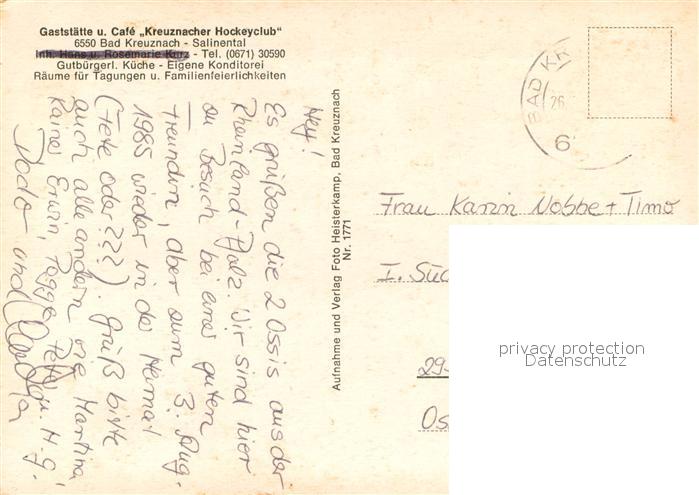 Gaststätte u. Café „Kreuznacher Hockeyclub"
6550 Bad Kreuznach - Salinental
Inh. Hans u. Rosemarie Kurz - Tel. (0671) 30590
Gutbürgerl. Küche - Eigene Konditorei
Räume für Tagungen u. Familienfeierlichkeiten
Hey!
Es grüßen die 2 Ossis aus der
Rheinland-Pfalz. Wir sind hier
zu Besuch bei einer guten
Freundin, aber zum 3. Aug.
1985 wieder in der Heimat
(Fete oder ???). Grüß bitte
auch alle andern wie Martina,
Rainer, Erwin, Peter u. H.G.!
Dodo und
Aufnahme und Verlag Foto Heisterkamp, Bad Kreuznach
Nr. 1771
BAD KR
26.
6
Frau Karin Nobbe + Timo
I. Süd
29
Os
privacy protection
Datenschutz